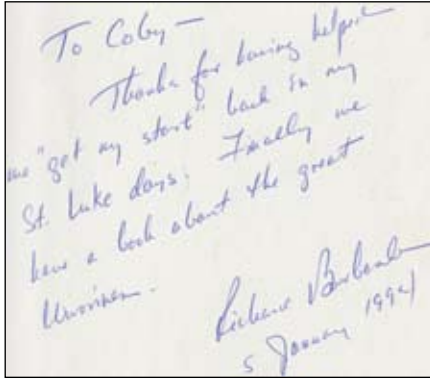 To Coby —
Thanks for having helped
me "get my start" back in my
St. Luke days. Finally we
have a book about the great
Richard
5 January 1994